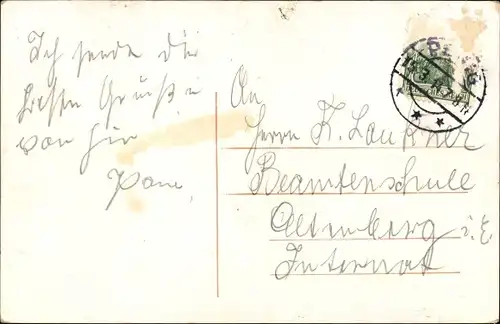 Ich sende die
besten Grüße
von hier
An
Herrn K. Lankner
Beamtenschule
Altenberg i. E.
Internat